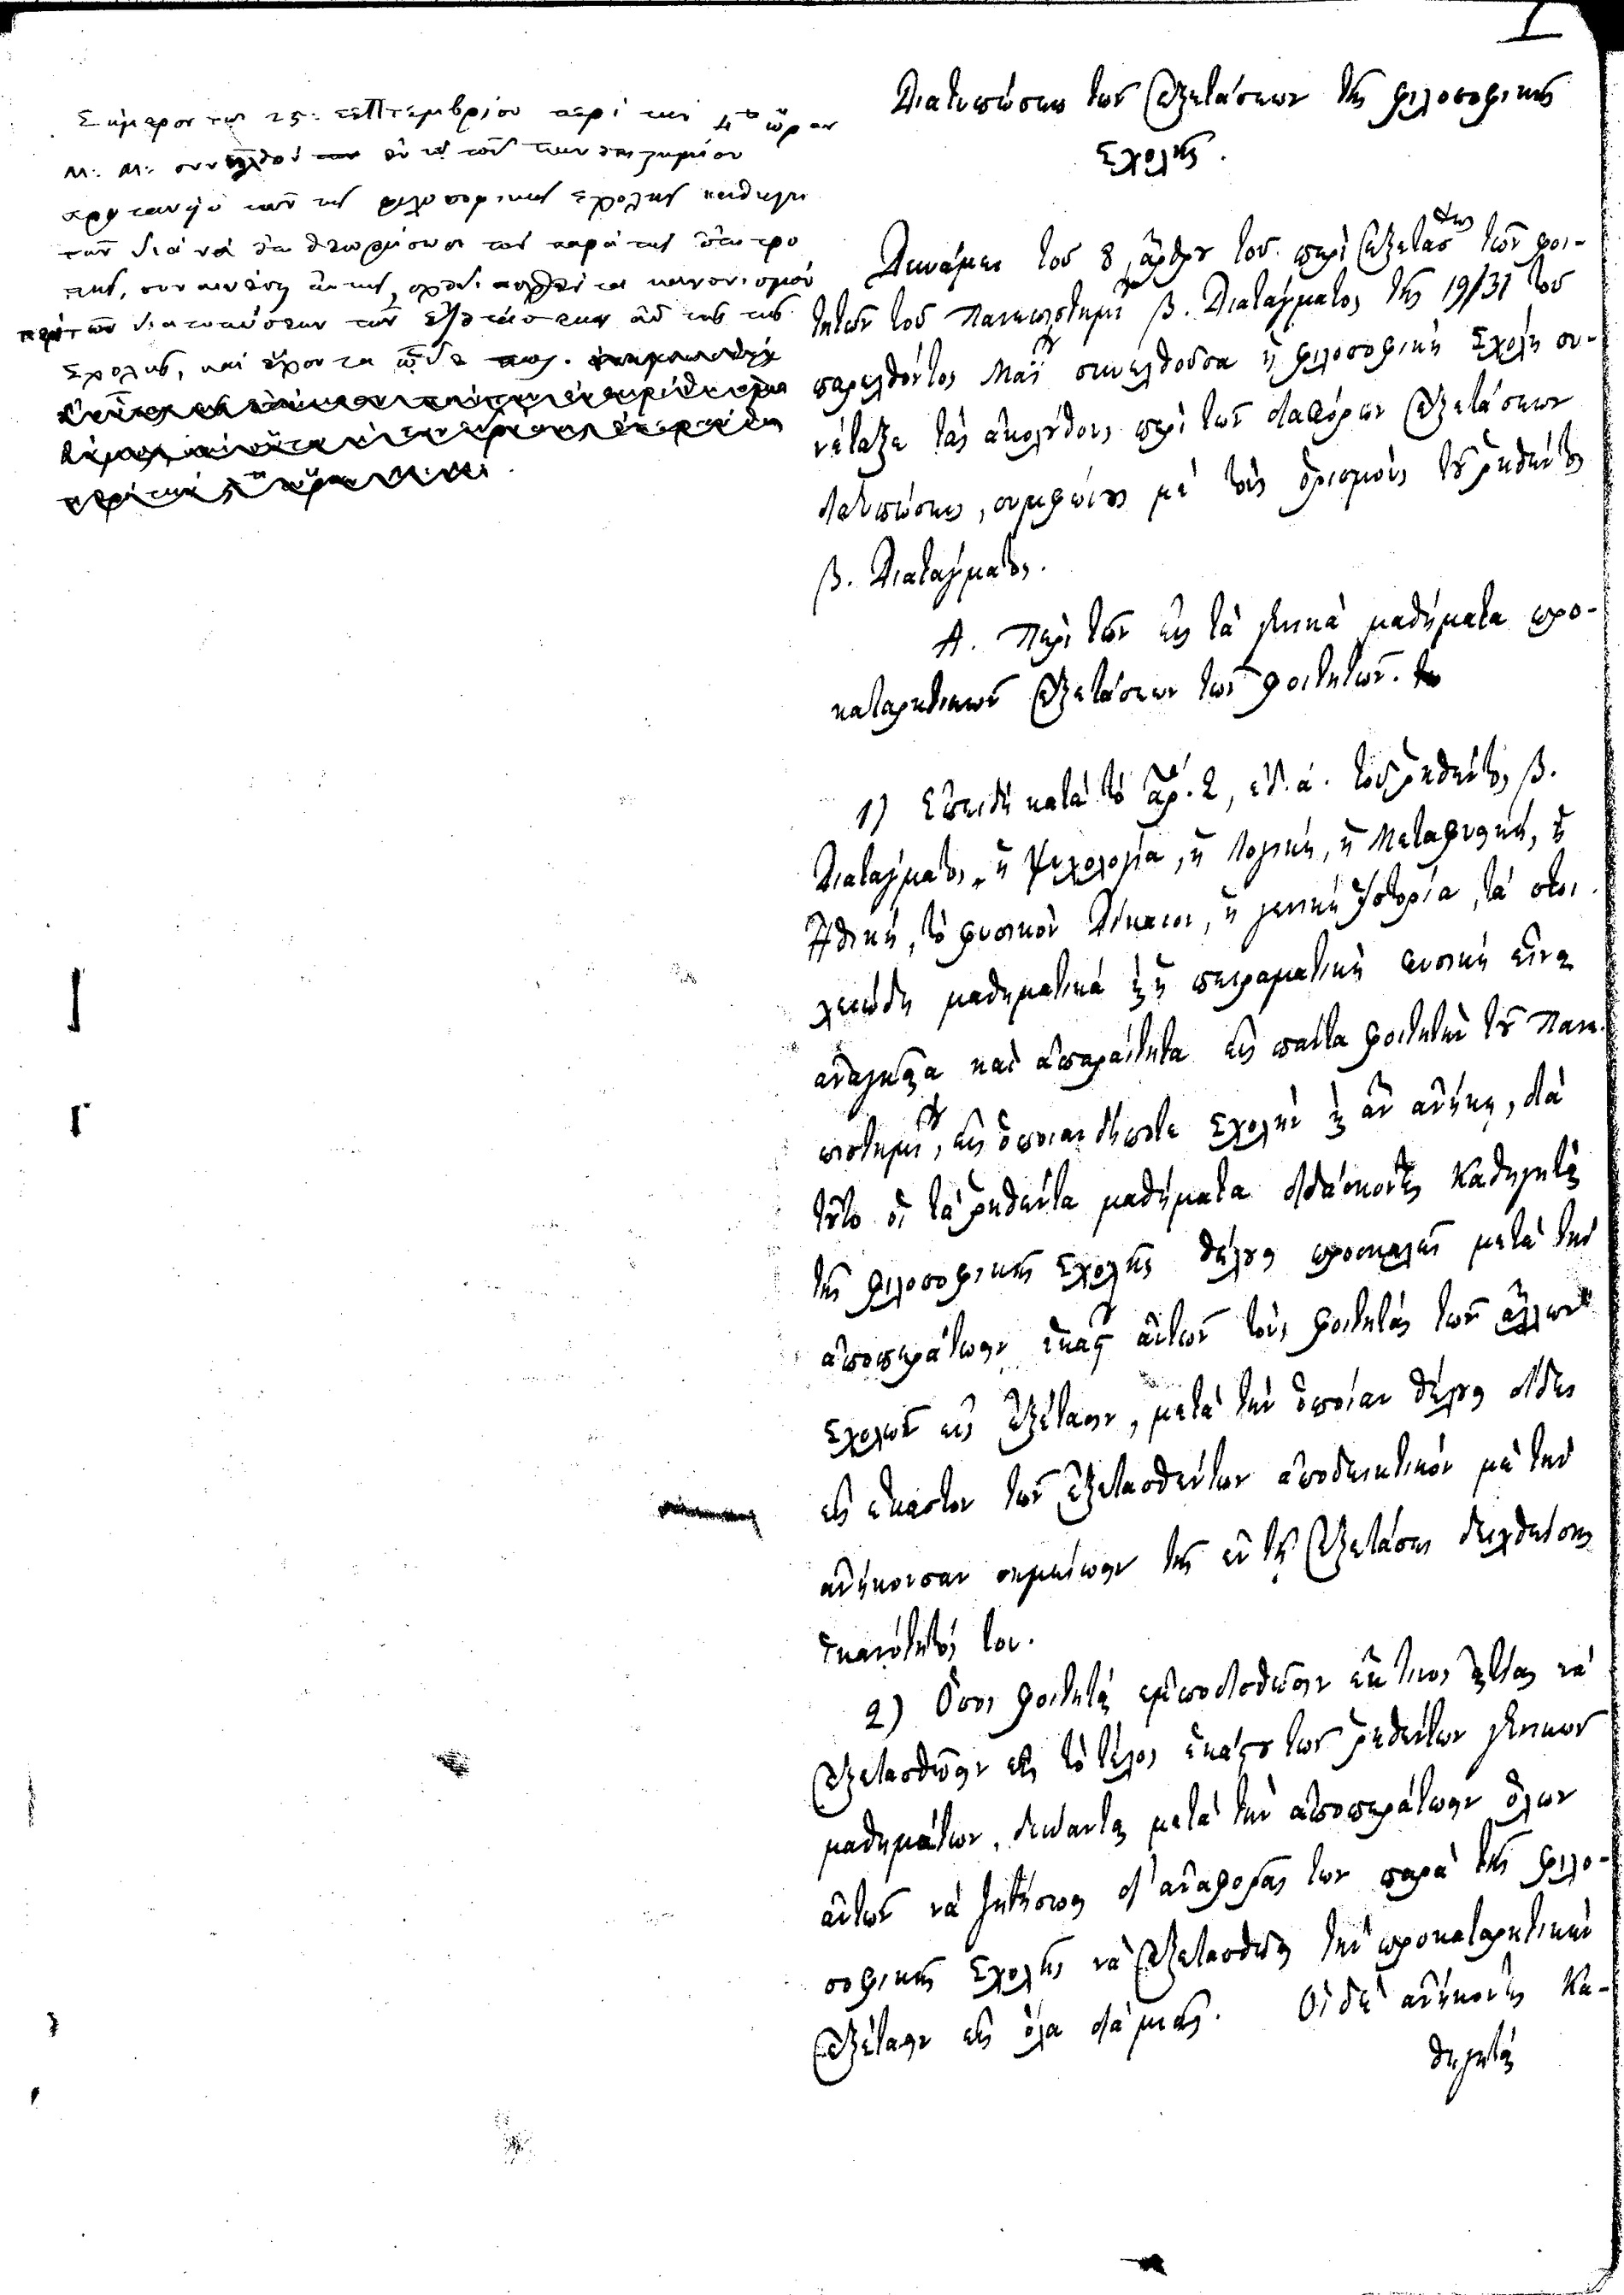 I
Σήμερον την 25: Σεπτεμβρίου περί την 4ην ὥραν
Μ: Μ: συνῆλθον ἐν τῷ τοῦ Πανεπιστημίου
πρυτανείῳ τῶν τῆς φιλοσοφικῆς Σχολῆς καθηγη
τῶν διά νά θεωρήσωσι τόν παρά τῆς ἐπιτρο
πῆς, κανονισμόν
περί τῶν διατυπώσεων τῶν ἐξετάσεων αὐτῆς τῆς
Σχολῆς, καί ἔχοντα ὧδε
Διατυπώσεις τῶν ἐξετάσεων τῆς φιλοσοφικῆς
Σχολῆς.
Δυνάμει τοῦ 8 ἄρθρου τοῦ περὶ ἐξετάσεως τῶν φοι-
τητῶν τοῦ Πανεπιστημίου β. Διατάγματος τῆς 19/31 τοῦ
παρελθόντος Μαΐου συνελθοῦσα ἡ φιλοσοφικὴ Σχολὴ συ-
νέταξε τὰς ἀκολούθους περὶ τῶν διαφόρων ἐξετάσεων
διατυπώσεις, συμφώνως μὲ τοὺς ὁρισμοὺς τοῦ ῥηθέντος
β. Διατάγματος.
Α. Περὶ τῶν εἰς τὰ γενικὰ μαθήματα προ-
καταρκτικῶν ἐξετάσεων τῶν φοιτητῶν.
1) Ἐπειδὴ κατὰ τὸ ἄρ. 2, ἐδ. ά. τοῦ ῥηθέντος β.
Διατάγματος, ἡ Ψυχολογία, ἡ Λογική, ἡ Μεταφυσική, ἡ
Ἠθική, τὸ φυσικὸν Δίκαιον, ἡ γενικὴ Ἱστορία, τὰ στοι-
χειώδη μαθηματικὰ καὶ ἡ πειραματικὴ φυσικὴ εἶναι
ἀναγκαῖα καὶ ἀπαραίτητα εἰς πάντα φοιτητὴν τοῦ Πανε-
πιστημίου, εἰς ὁποιανδήποτε Σχολὴν καὶ ἂν ἀνήκῃ, διὰ
τοῦτο οἱ τὰ ῥηθέντα μαθήματα διδάσκοντες Καθηγηταὶ
τῆς φιλοσοφικῆς Σχολῆς θέλουν προσκαλεῖ μετὰ τὴν
ἀποπεράτωσιν ἑκάστου αὐτῶν τοὺς φοιτητὰς τῶν ἄλλων
Σχολῶν εἰς ἐξέτασιν, μετὰ τὴν ὁποίαν θέλουν δίδει
εἰς ἕκαστον τῶν ἐξετασθέντων ἀποδεικτικὸν μὲ τὴν
ἀνήκουσαν σημείωσιν τῆς ἐν τῇ ἐξετάσει δειχθείσης
ἱκανότητός του.
2) Ὅσοι φοιτηταὶ ἐμποδισθῶσιν ἔκ τινος αἰτίας νὰ
ἐξετασθῶσιν εἰς τὸ τέλος ἑκάστου τῶν ῥηθέντων γενικῶν
μαθημάτων, δύνανται μετὰ τὴν ἀποπεράτωσιν ὅλων
αὐτῶν νὰ ζητήσωσι δι' ἀναφορᾶς των παρὰ τῆς φιλο-
σοφικῆς Σχολῆς νὰ ἐξετασθῶσι τὴν προκαταρκτικὴν
ἐξέτασιν εἰς ὅλα διὰ μιᾶς. Οἱ δὲ ἀνήκοντες Κα-
θηγηταὶ